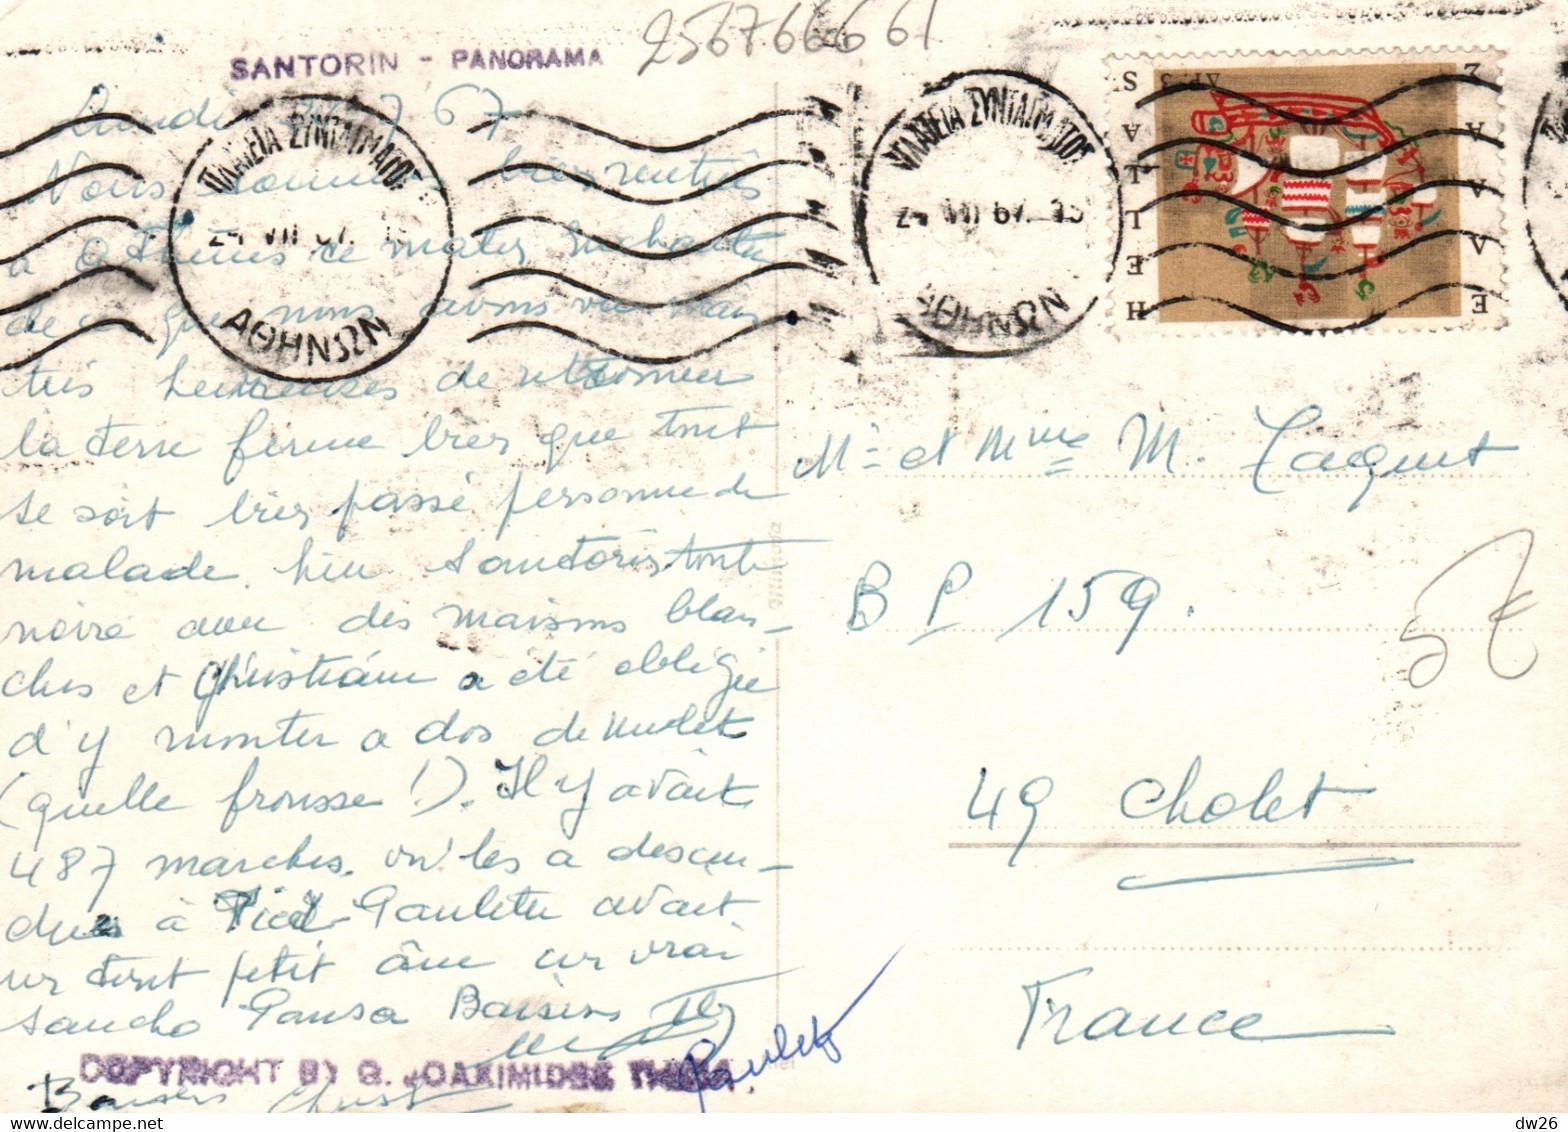 2567666 61
SANTORIN - PANORAMA
Lundi 67
Nous sommes bien rentrés
à Athènes ce matin enchantés
de ce que nous avons vu mais
très heureuses de retrouver
la terre ferme bien que tout
se soit bien passé personne de
malade. hier Santorin toute
noire avec des maisons blan-
ches et Christiane a été obligée
d'y monter a dos de mulet
(quelle frousse !). Il y avait
487 marches. on les a descen-
dues à Pied Paulette avait
un tout petit âne un vrai
Sancho Pansa Baisers
Paulette
COPYRIGHT BY G. JOAKIMIDES THIRA
Baisers Christ
ΠΛΑΤΕΙΑ ΣΥΝΤΑΓΜΑΤΟΣ
24 VII 67
ΑΘΗΝΩΝ
ΠΛΑΤΕΙΑ ΣΥΝΤΑΓΜΑΤΟΣ
24 VII 67
ΑΘΗΝΩΝ
ΕΛΛΑΣ
HELLAS
ΔΡ. 3
Mr et Mme M. Taquet
B P 159.
49 Cholet
France
dw26